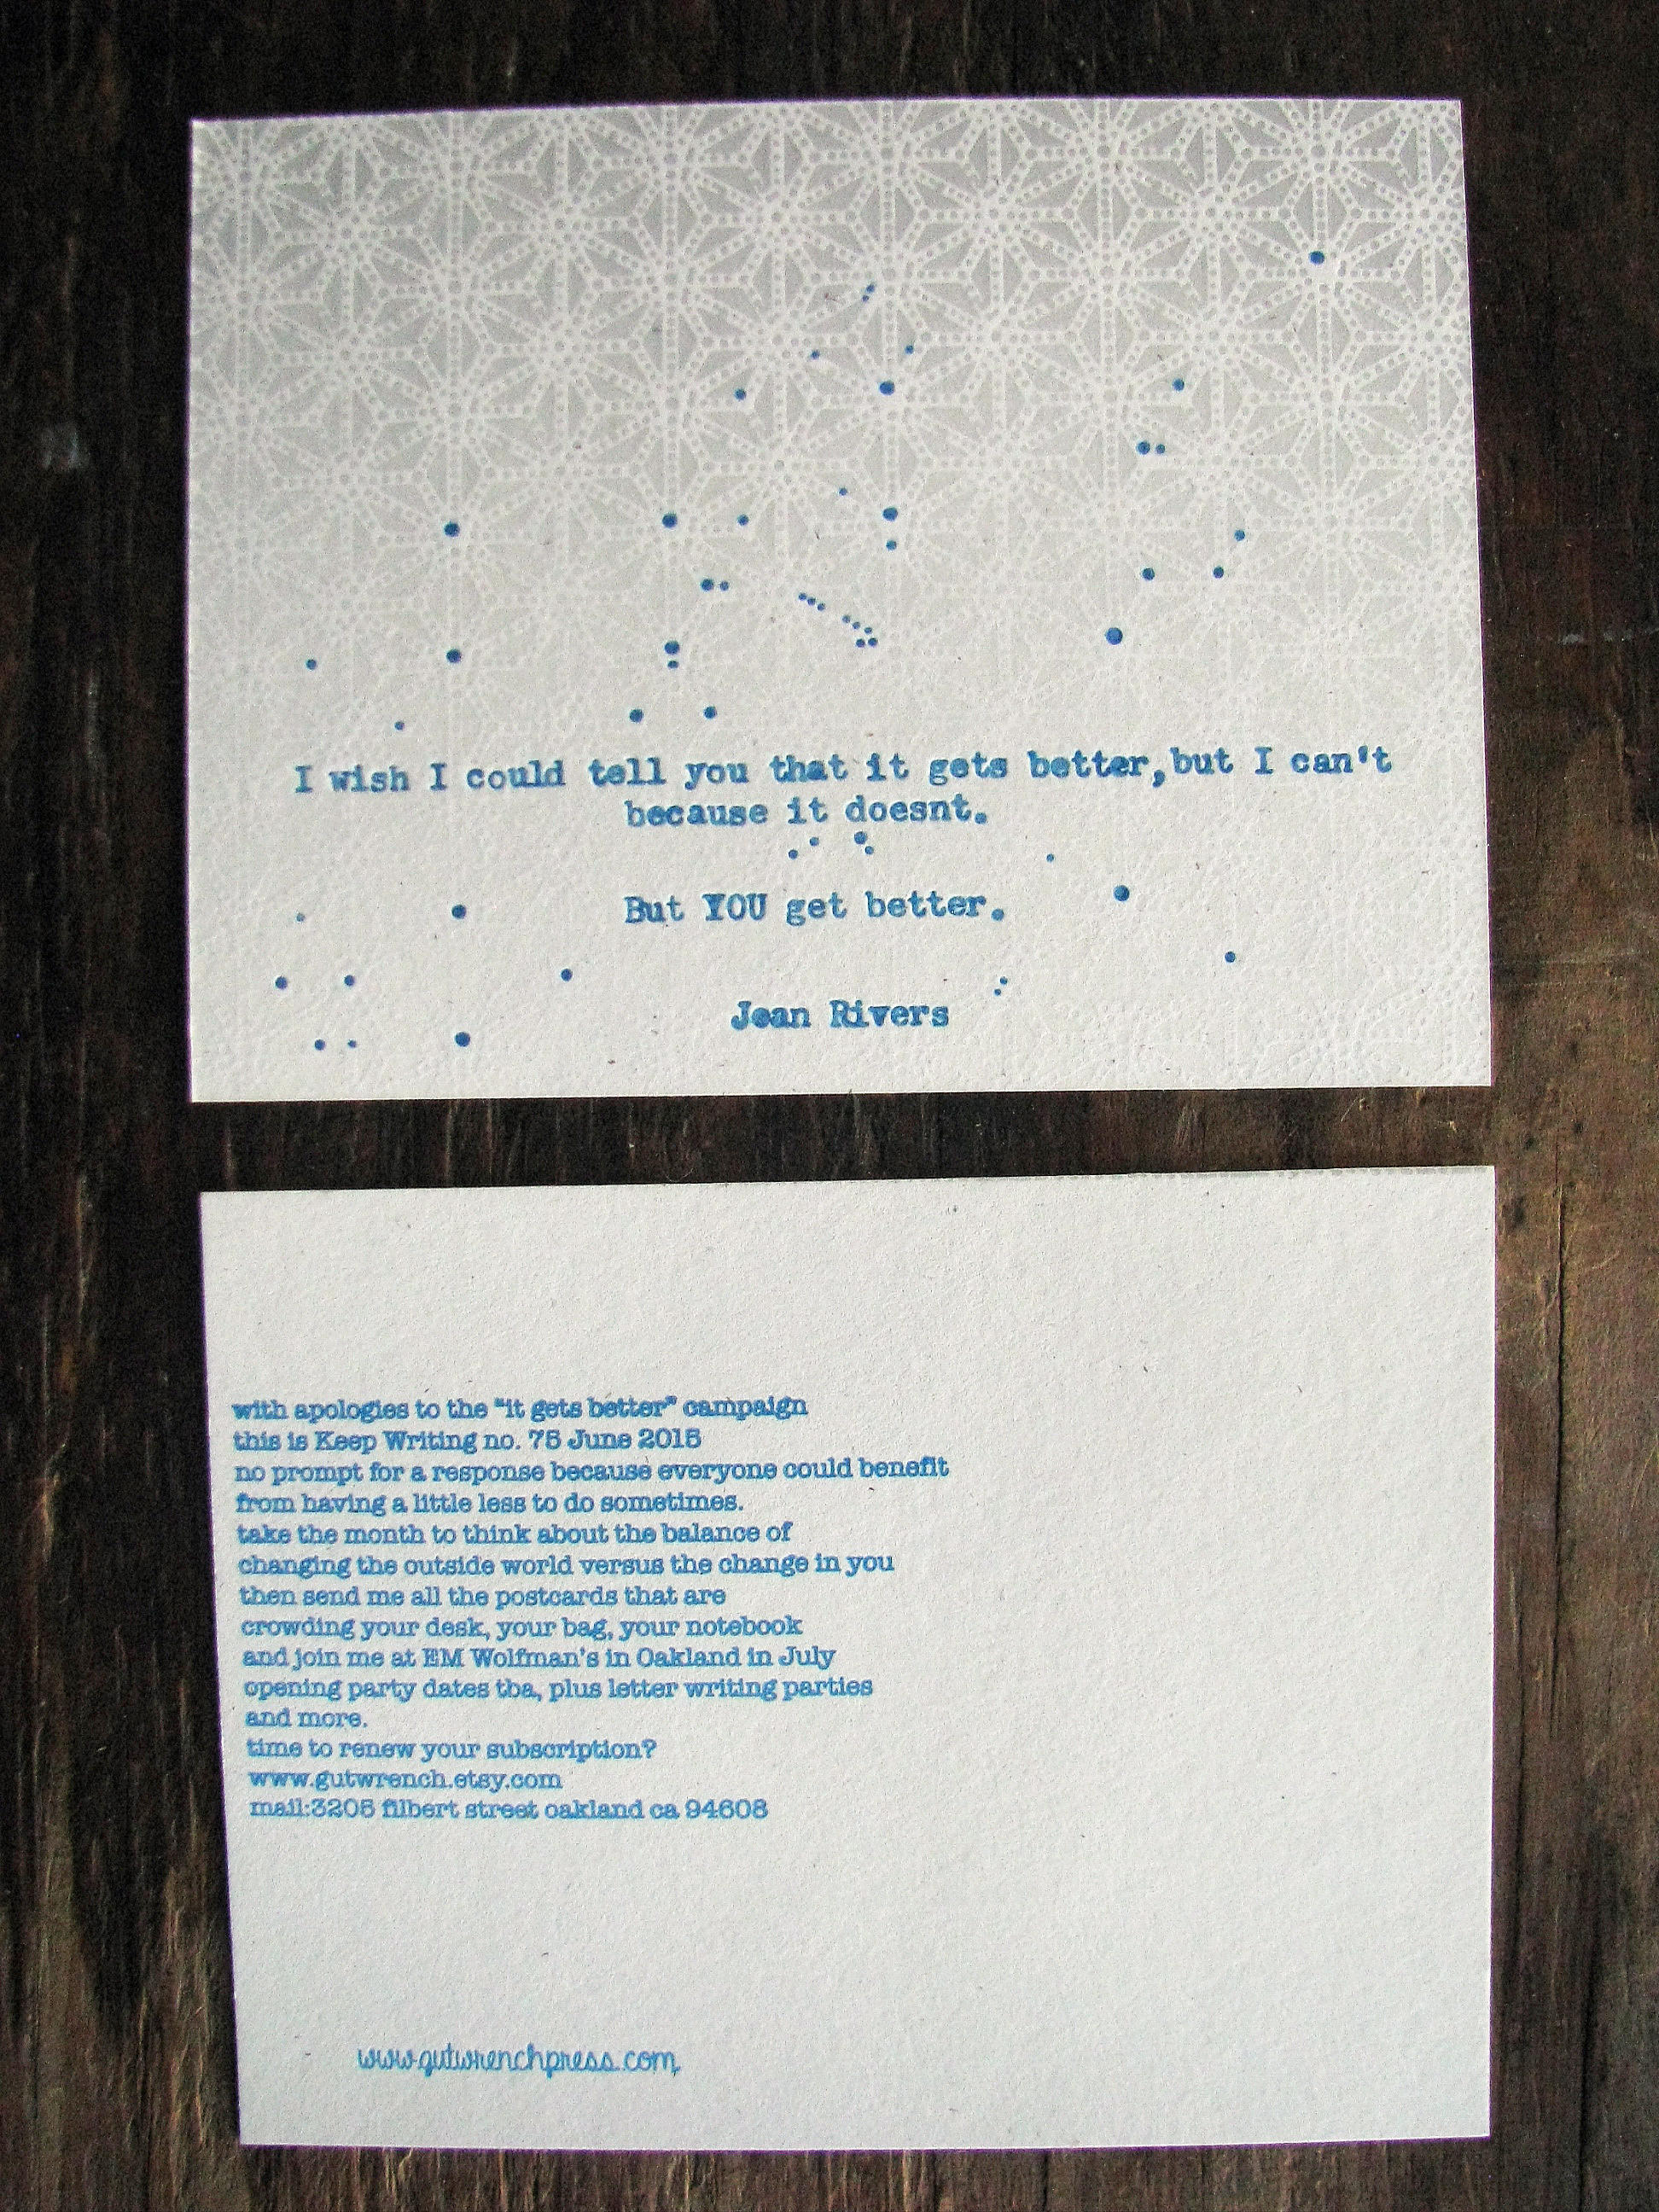 I wish I could tell you that it gets better,but I can't
because it doesnt.
But YOU get better.
Joan Rivers
with apologies to the “it gets better” campaign
this is Keep Writing no. 75 June 2015
no prompt for a response because everyone could benefit
from having a little less to do sometimes.
take the month to think about the balance of
changing the outside world versus the change in you
then send me all the postcards that are
crowding your desk, your bag, your notebook
and join me at EM Wolfman's in Oakland in July
opening party dates tba, plus letter writing parties
and more.
time to renew your subscription?
www.gutwrench.etsy.com
mail:3205 filbert street oakland ca 94608
www.gutwrenchpress.com